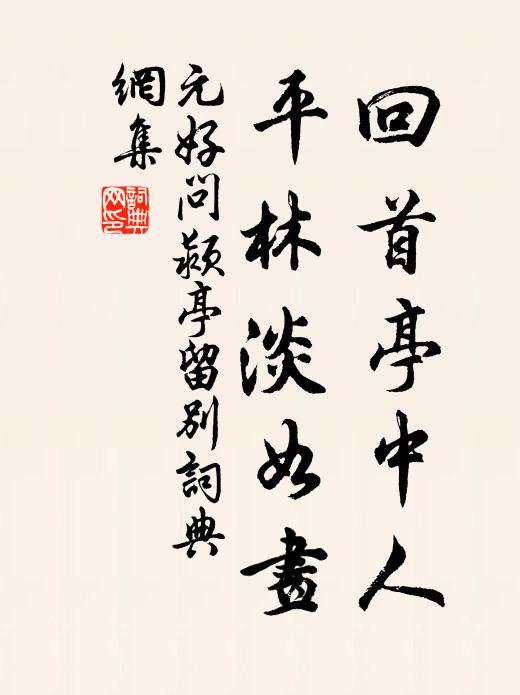 回首亭中人
平林淡如畫
元好問潁亭留別詞典
網集
詞典
网印